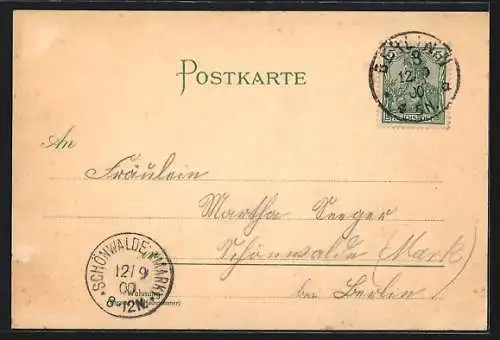 POSTKARTE
BERLIN
8
12/9
00
N.
An
Fräulein
Martha Seeger
Schönwalde (Mark)
bei Berlin
SCHÖNWALDE (MARK)
12/9
00
8-12N.
Wohnung